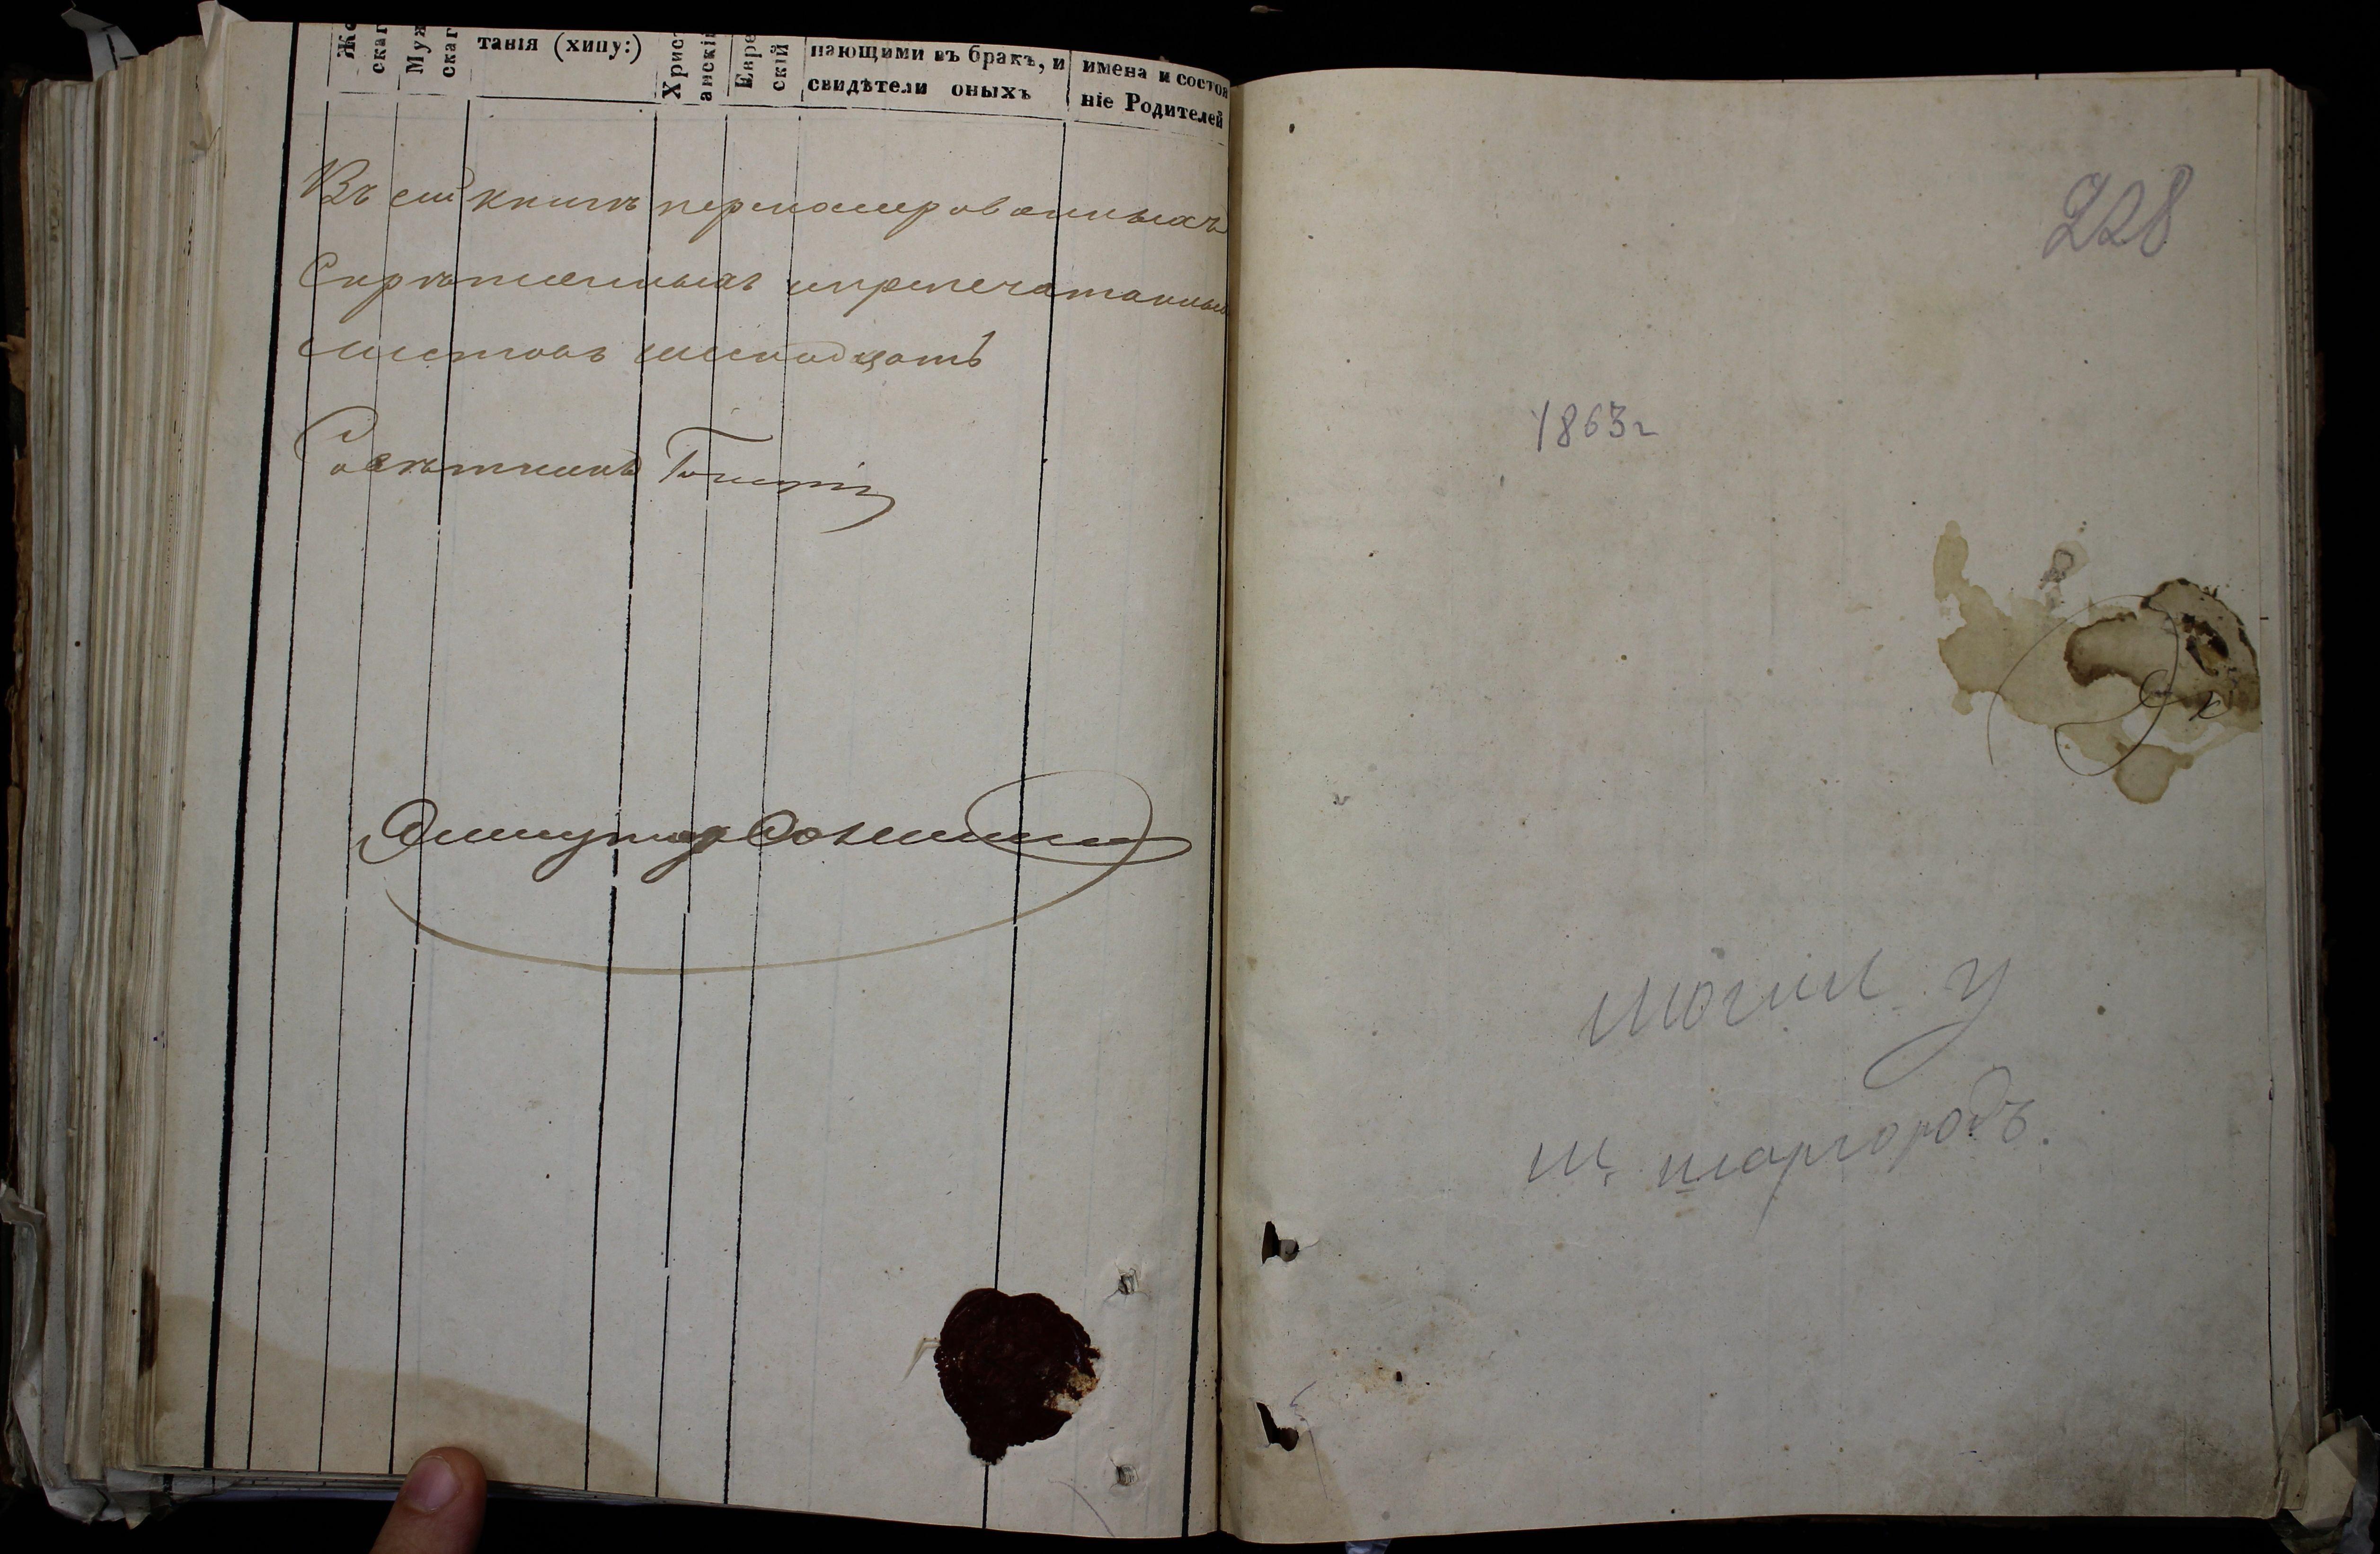 Же
скаг
Муж
скаг
танія (хипу:)
Христ
анскій
Евре
скій
пающими въ бракъ, и
свидѣтели оныхъ
имена и состоя
ніе Родителей
Въ сей книгѣ перномерованныхъ
Скрѣпленныхъ и припечатанных
листовъ шеснадцать
Совѣтникъ
Депутатъ
228
1863 г
могил у
м. шаргородъ.